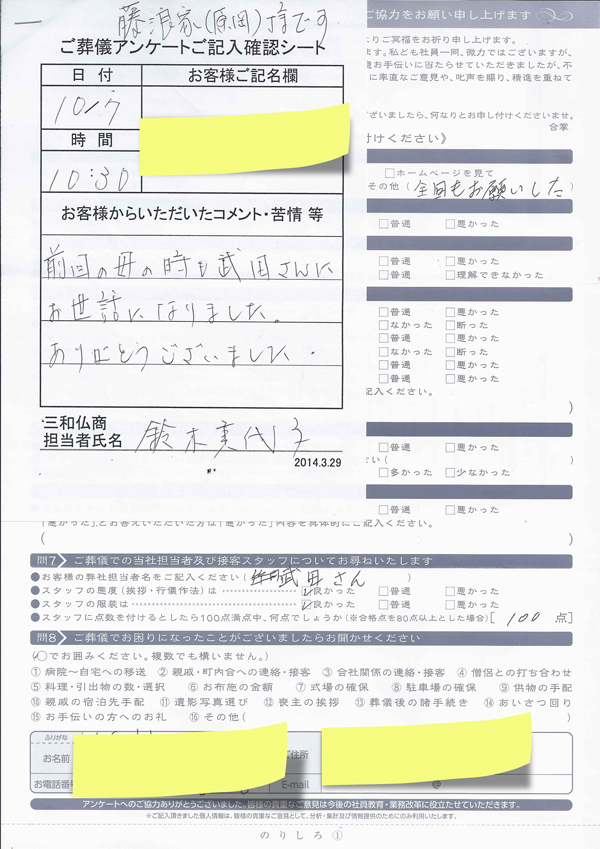 藤浪家(原岡)様です
ご葬儀アンケートご記入確認シート
日付
お客様ご記名欄
10/7
時間
10:30
お客様からいただいたコメント・苦情 等
前回の母の時も武田さんに
お世話になりました。
ありがとうございました.
三和仏商
担当者氏名 鈴木美代子
2014.3.29
ご協力をお願い申し上げます
りご冥福をお祈り申し上げます。
ます。私ども社員一同、微力ではございますが、
儀お手伝いに当たらせていただきましたが、不
に率直なご意見や、叱声を賜り、精進を重ねて
ございましたら、何なりとお申し付けくださいませ。
合掌
付けください》
□ホームページを見て
その他(全回もお願いした)
□普通 □悪かった
□普通 □悪かった
□普通 □理解できなかった
□普通 □悪かった
□なかった □断った
□普通 □悪かった
□なかった □断った
□普通 □悪かった
□普通 □悪かった
記入ください。
)
□普通 □悪かった
さい(
□多かった □少なかった
□普通 □悪かった
「悪かった」とお答えいただいた方は「悪かった」内容を具体的にご記入ください。
( )
問7 ご葬儀での当社担当者及び接客スタッフについてお尋ねいたします
●お客様の弊社担当者名をご記入ください(武田さん
●スタッフの態度(挨拶・行儀作法)は ☑良かった □普通 □悪かった
●スタッフの服装は ☑良かった □普通 □悪かった
●スタッフに点数を付けるとしたら100点満点中、何点でしょうか(※合格点を80点以上とした場合)[ 100 点]
問8 ご葬儀でお困りになったことがございましたらお聞かせください
(○でお囲みください。複数でも構いません。)
①病院～自宅への移送 ②親戚・町内会への連絡・接客 ③会社関係の連絡・接客 ④僧侶との打ち合わせ
⑤料理・引出物の数・選択 ⑥お布施の金額 ⑦式場の確保 ⑧駐車場の確保 ⑨供物の手配
⑩親戚の宿泊先手配 ⑪遺影写真選び ⑫喪主の挨拶 ⑬葬儀後の諸手続き ⑭あいさつ回り
⑮お手伝いの方へのお礼 ⑯その他( )
ふりがな
お名前
ご住所
お電話番号
E-mail @
アンケートへのご協力ありがとうございました。皆様の貴重なご意見は今後の社員教育・業務改革に役立たせていただきます。
※ご記入頂きました個人情報は、皆様の貴重なご意見として、分析・集計及び情報提供のためにのみ利用いたします。
のりしろ①